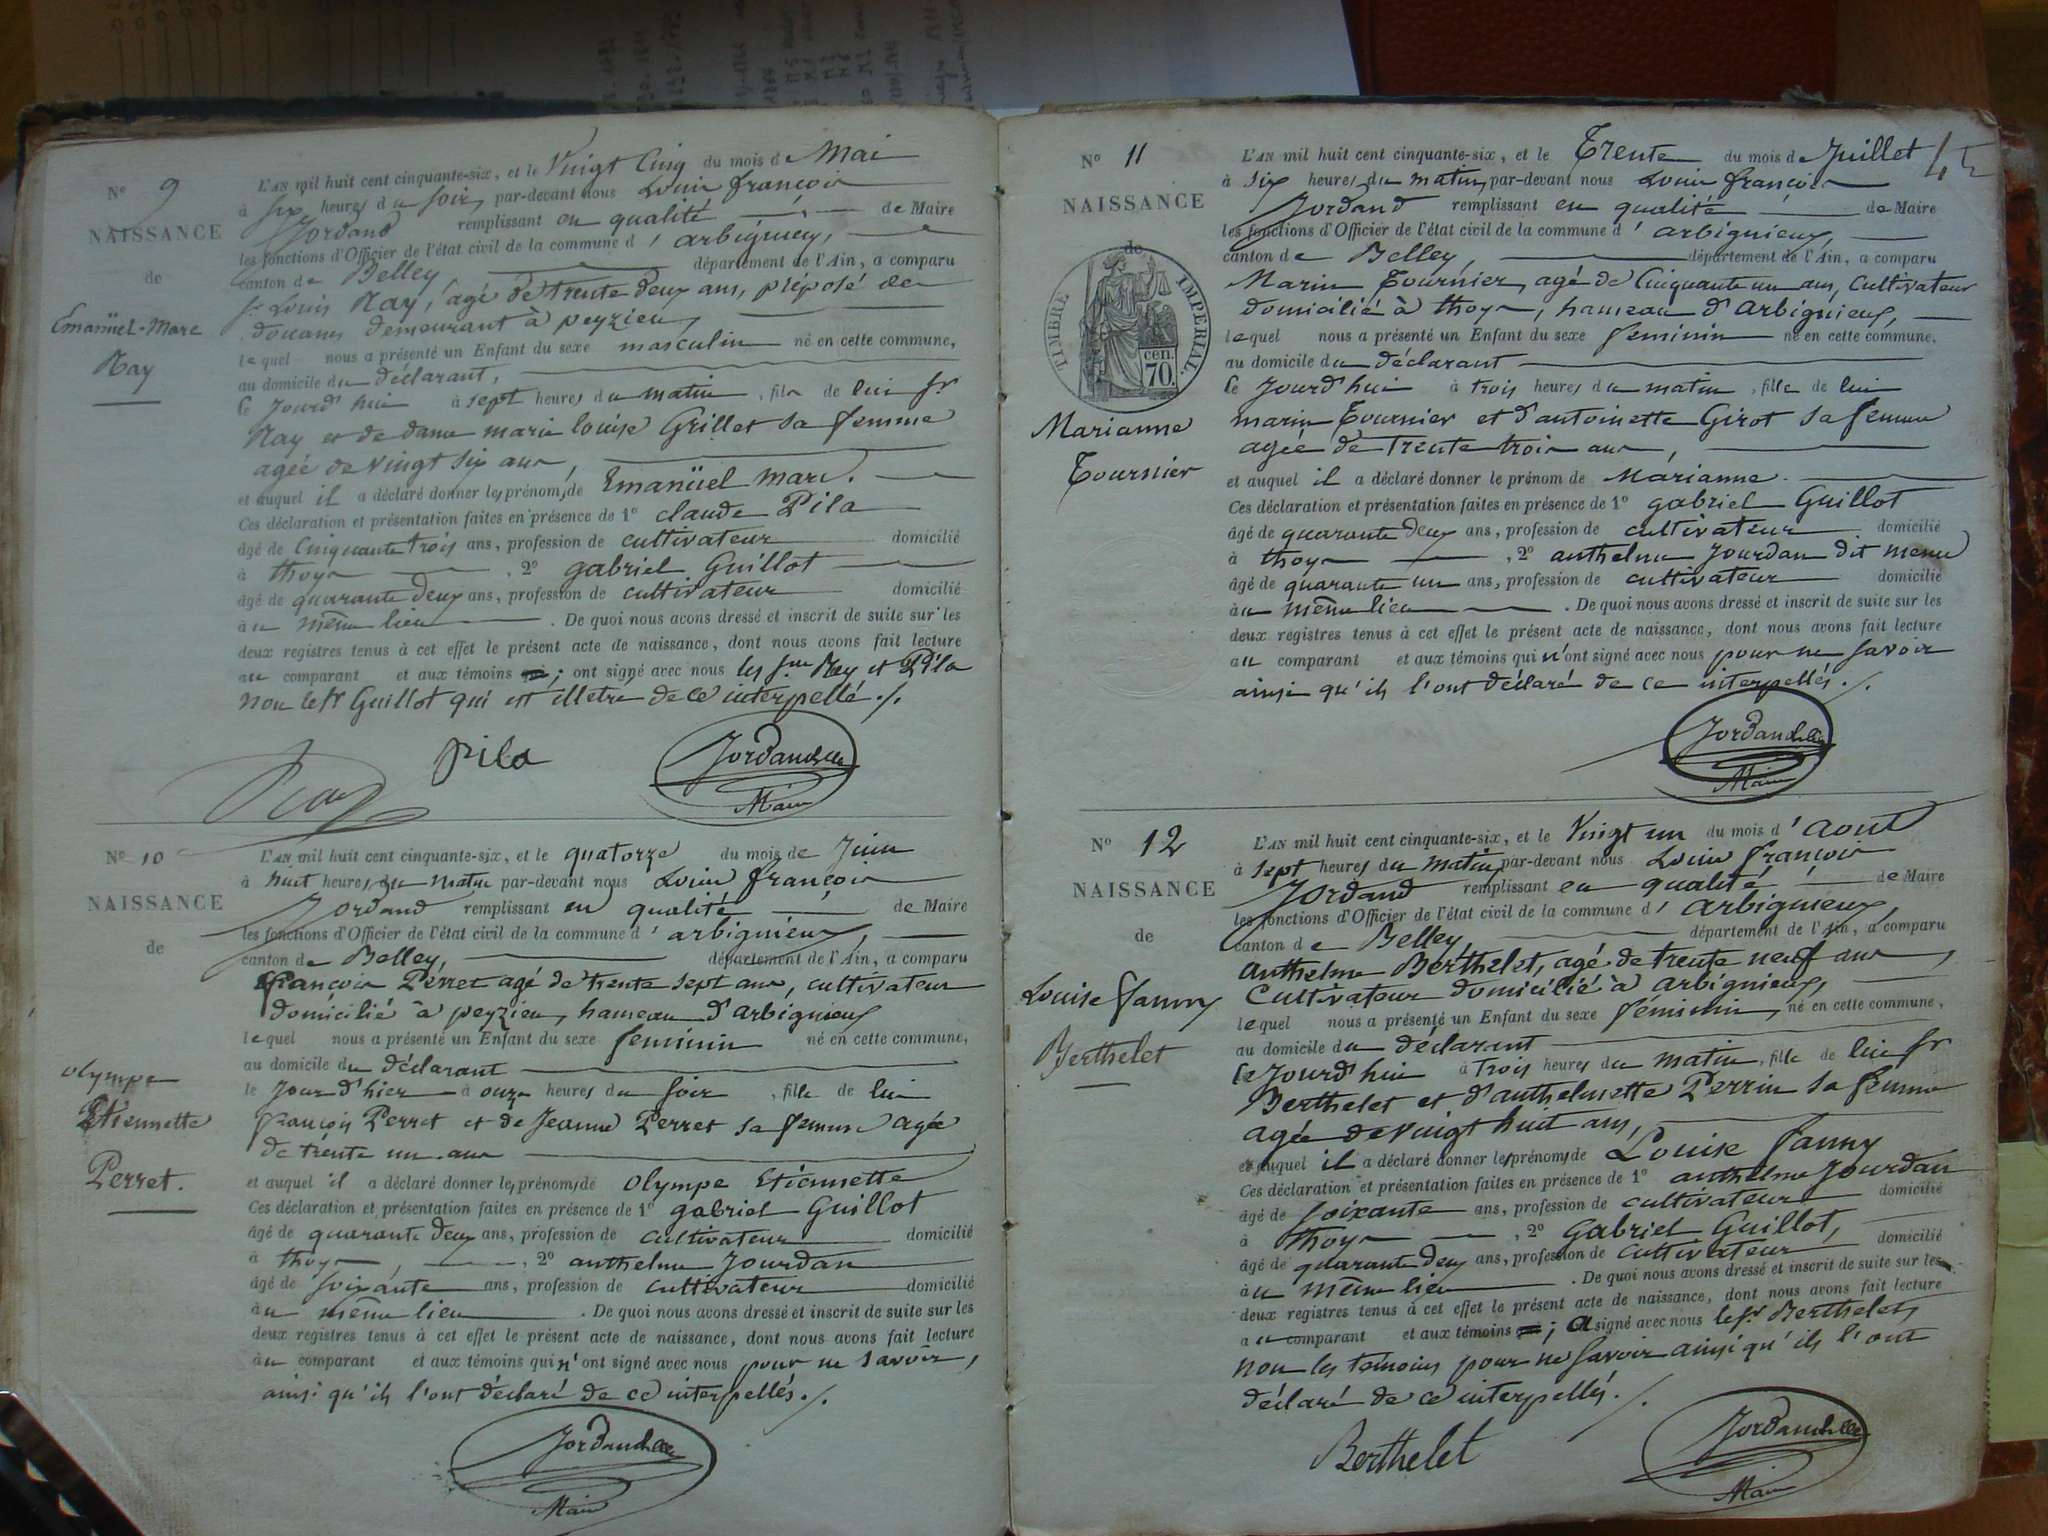 N° 9
NAISSANCE
de
Emanüel-Marc
Ray
L'AN mil huit cent cinquante-six, et le Vingt Cinq du mois de Mai
à six heures du soir, par-devant nous Louis françois
Jordand remplissant en qualité de Maire
les fonctions d'Officier de l'état civil de la commune d'arbignieux,
canton de Belley, département de l'Ain, a comparu
sr Louis Ray, agé de trente deux ans, préposé des
douanes demeurant à peyzieu,
lequel nous a présenté un Enfant du sexe masculin né en cette commune,
au domicile du déclarant,
le jourd'hui à sept heures du matin, fils de lui sr
Ray et de dame marie louise Grillet sa femme
agée de vingt six ans,
et auquel il a déclaré donner les prénoms de Emanüel marc.
Ces déclaration et présentation faites en présence de 1° claude Pila
âgé de cinquante trois ans, profession de cultivateur domicilié
à thoys, 2° gabriel Guillot
âgé de quarante deux ans, profession de cultivateur domicilié
au même lieu. De quoi nous avons dressé et inscrit de suite sur les
deux registres tenus à cet effet le présent acte de naissance, dont nous avons fait lecture
au comparant et aux témoins ; ont signé avec nous les srs Ray et Pila
non le sr Guillot qui est illetré de ce interpellé ./.
Pila
Ray
Jordand
Maire
N° 10
NAISSANCE
de
olympe
Etiennette
Perret.
L'AN mil huit cent cinquante-six, et le quatorze du mois de Juin
à huit heures du matin par-devant nous Louis françois
Jordand remplissant en qualité de Maire
les fonctions d'Officier de l'état civil de la commune d'arbignieux,
canton de Belley, département de l'Ain, a comparu
françois Perret agé de trente sept ans, cultivateur
domicilié à peyzieu, hameau d'arbignieux
lequel nous a présenté un Enfant du sexe feminin né en cette commune,
au domicile du déclarant
le jour d'hier à onze heures du soir, fille de lui
françois Perret et de Jeanne Perret sa femme agée
de trente un ans
et auquel il a déclaré donner les prénoms de olympe Etiennette
Ces déclaration et présentation faites en présence de 1° gabriel Guillot
âgé de quarante deux ans, profession de cultivateur domicilié
à thoys, 2° anthelme Jourdan
âgé de soixante ans, profession de cultivateur domicilié
au même lieu. De quoi nous avons dressé et inscrit de suite sur les
deux registres tenus à cet effet le présent acte de naissance, dont nous avons fait lecture
au comparant et aux témoins qui n'ont signé avec nous pour ne savoir,
ainsi qu'ils l'ont déclaré de ce interpellés ./.
Jordand
Maire
N° 11
NAISSANCE
de
TIMBRE IMPERIAL
70 cen.
Marianne
Tournier
L'AN mil huit cent cinquante-six, et le Trente du mois de Juillet
à six heures du matin, par-devant nous Louis françois
Jordand remplissant en qualité de Maire
les fonctions d'Officier de l'état civil de la commune d'arbignieux,
canton de Belley, département de l'Ain, a comparu
Marin Tournier, agé de Cinquante un ans, cultivateur
domicilié à thoys, hameau d'arbignieux,
lequel nous a présenté un Enfant du sexe feminin né en cette commune,
au domicile du déclarant
le jourd'hui à trois heures du matin, fille de lui
marin Tournier et d'antoinette Girot sa femme
agée de trente trois ans,
et auquel il a déclaré donner le prénom de Marianne.
Ces déclaration et présentation faites en présence de 1° gabriel Guillot
âgé de quarante deux ans, profession de cultivateur domicilié
à thoys, 2° anthelme Jourdan dit menu
âgé de quarante un ans, profession de cultivateur domicilié
au même lieu. De quoi nous avons dressé et inscrit de suite sur les
deux registres tenus à cet effet le présent acte de naissance, dont nous avons fait lecture
au comparant et aux témoins qui n'ont signé avec nous pour ne savoir
ainsi qu'ils l'ont déclaré de ce interpellés ./.
Jordand
Maire
N° 12
NAISSANCE
de
Louise fanny
Berthelet
L'AN mil huit cent cinquante-six, et le Vingt un du mois d'aout
à sept heures du matin, par-devant nous Louis françois
Jordand remplissant en qualité de Maire
les fonctions d'Officier de l'état civil de la commune d'arbignieux,
canton de Belley, département de l'Ain, a comparu
anthelme Berthelet, agé de trente neuf ans,
cultivateur domicilié à arbignieux,
lequel nous a présenté un Enfant du sexe féminin, né en cette commune,
au domicile du déclarant
le jourd'hui à trois heures du matin, fille de lui sr
Berthelet et d'anthelmette Perrin sa femme
agée de vingt huit ans,
et auquel il a déclaré donner les prénoms de Louise fanny
Ces déclaration et présentation faites en présence de 1° anthelme Jourdan
âgé de soixante ans, profession de cultivateur domicilié
à thoys, 2° Gabriel Guillot,
âgé de quarante deux ans, profession de cultivateur domicilié
au même lieu. De quoi nous avons dressé et inscrit de suite sur les
deux registres tenus à cet effet le présent acte de naissance, dont nous avons fait lecture
au comparant et aux témoins ; a signé avec nous le sr Berthelet,
non les témoins pour ne savoir ainsi qu'ils l'ont
déclaré de ce interpellés. /.
Berthelet
Jordand
Maire